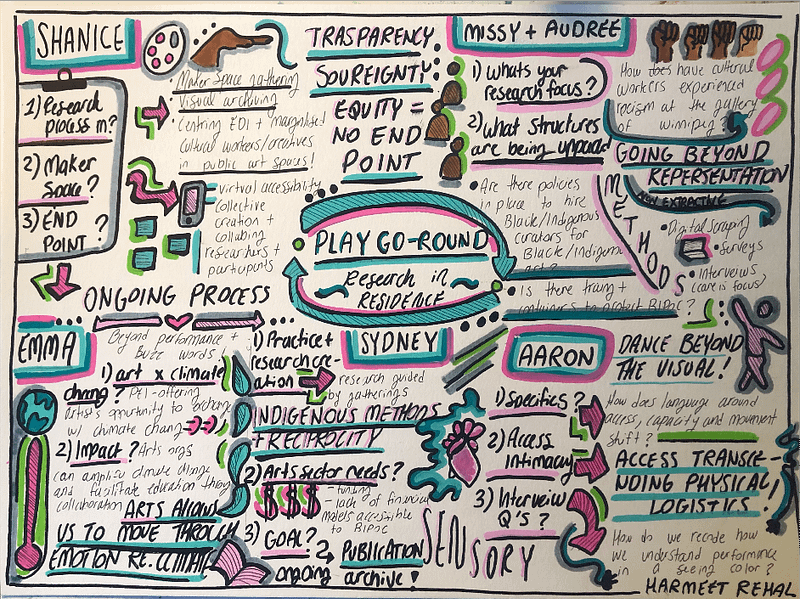 SHANICE
1) Research
process in?
2) Maker
Space?
3) END
POINT?
• Maker Space gathering
Visual archiving
• Centring EDI + marginalized
cultural workers/creatives
in public art spaces!
• virtual accessibility
collective
creation +
collabing
researchers +
participants
ONGOING PROCESS
TRASPARENCY
SOUREIGNTY
EQUITY =
NO END
POINT
MISSY + AUDRÉE
1) Whats your
research focus?
2) What structures
are being upheld
• Are there policies
in place to hire
Black/Indigenous
curators for
Black/Indigenous
art?
• Is there training +
containers to protect BIPOC?
How does have cultural
workers experienced
racism at the gallery
of winnipeg?
GOING BEYOND
REPERSENTATION
NON EXTRACTIVE
METHODS
• Digital scraping
• Surveys
• Interviews
(care is focus)
PLAY GO-ROUND
Research in
RESIDENCE
EMMA
Beyond performance +
Buzz words!
1) art x climate
chang?
PEI-offering
artists opportunity to exchange
w/ climate chang
2) Impact? Arts orgs
can amplify climate change
and facilitate education through
collaboration
ARTS ALLOWS
US TO MOVE THROUGH
EMOTION RE. CLIMATE
SYDNEY
1) Practice +
research cre-
ation
research guided
by gatherings
INDIGENOUS METHODS
+ RECIPROCITY
2) Arts sector needs?
$$$
- funding
- lack of financial
models accessible
to BIPOC
3) GOAL?
PUBLICATION
ongoing archive!
SENSORY
AARON
1) Specifics?
2) Access
Intimacy
3) Interview
Q's?
DANCE BEYOND
THE VISUAL!
How does language around
access, capacity and movement
shift?
ACCESS TRANSCE-
NDING PHYSICAL,
LOGISTICS!
How do we recode how
we understand performance
in a seeing color?
HARMEET REHAL